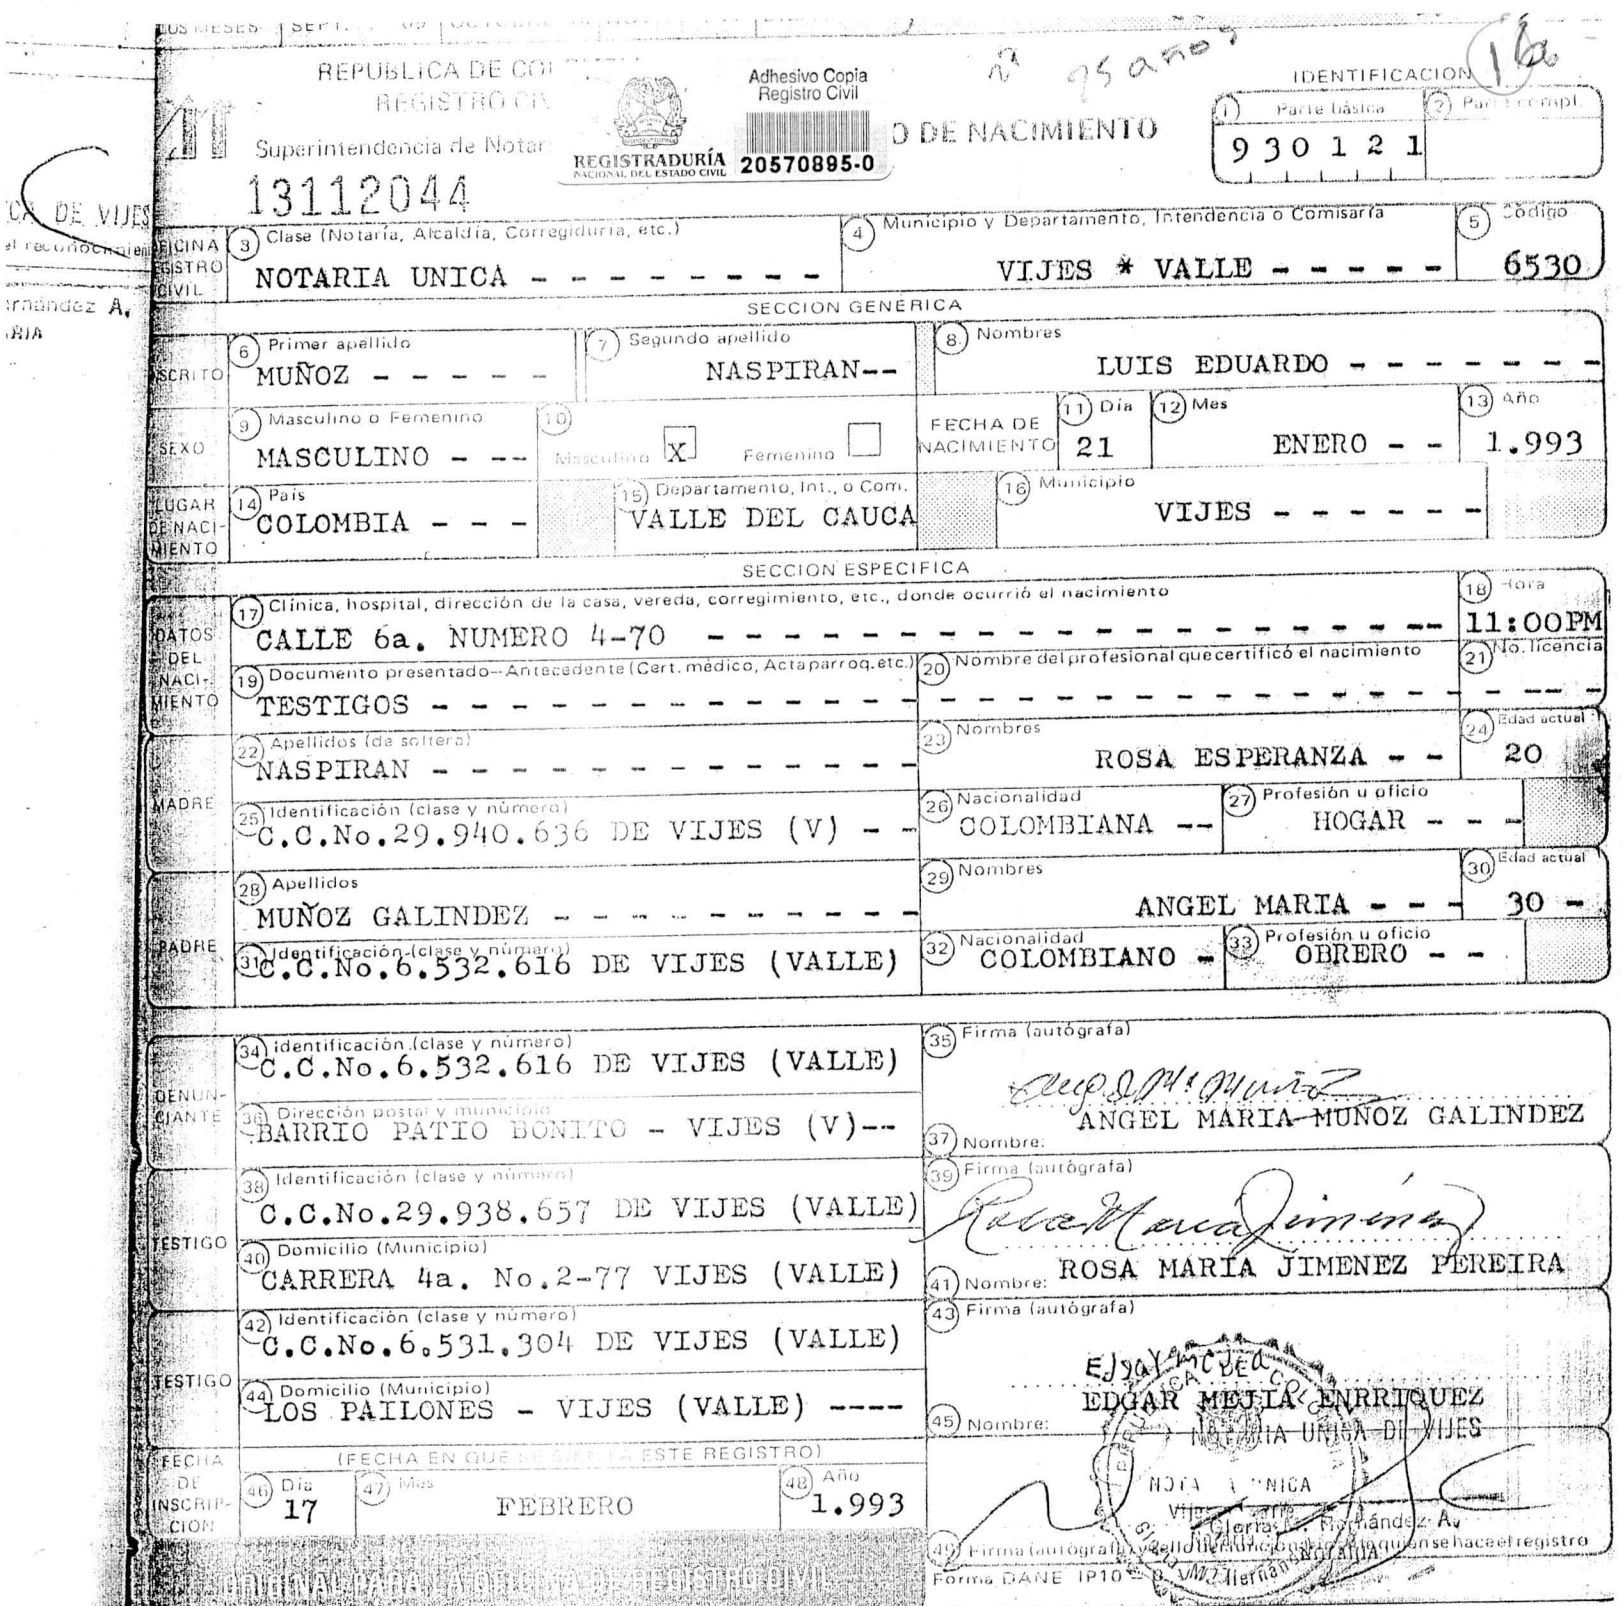 LOS MESES SEPT. 09 OCTUBRE
REPUBLICA DE COL
REGISTRO CIV
Superintendencia de Notar
13112044
REGISTRADURÍA
NACIONAL DEL ESTADO CIVIL
Adhesivo Copia
Registro Civil
20570895-0
O DE NACIMIENTO
25 años
16a
IDENTIFICACION
1 Parte básica
2 Parte compl.
930121
DE VIJES
el reconocimien
ernández A.
ARIA
OFICINA REGISTRO CIVIL
3 Clase (Notaría, Alcaldía, Corregiduría, etc.)
NOTARIA UNICA - - - - - - - -
4 Municipio y Departamento, Intendencia o Comisaría
VIJES * VALLE - - - - -
5 Código
6530
SECCION GENERICA
INSCRITO
6 Primer apellido
MUÑOZ - - - - -
7 Segundo apellido
NASPIRAN--
8 Nombres
LUIS EDUARDO - - - - - - -
SEXO
9 Masculino o Femenino
MASCULINO - --
10
Masculino X Femenino
FECHA DE NACIMIENTO
11 Día
21
12 Mes
ENERO - -
13 Año
1.993
LUGAR DE NACIMIENTO
14 País
COLOMBIA - - -
15 Departamento, Int., o Com.
VALLE DEL CAUCA
16 Municipio
VIJES - - - - - -
SECCION ESPECIFICA
DATOS DEL NACIMIENTO
17 Clínica, hospital, dirección de la casa, vereda, corregimiento, etc., donde ocurrió el nacimiento
CALLE 6a. NUMERO 4-70 - - - - - - - - - - - - - - - - - --
18 Hora
11:00PM
19 Documento presentado-Antecedente (Cert. médico, Acta parroq. etc.)
TESTIGOS - - - - - - - - - - - - -
20 Nombre del profesional que certificó el nacimiento
21 No. licencia
MADRE
22 Apellidos (de soltera)
NASPIRAN - - - - - - - - - - - - -
23 Nombres
ROSA ESPERANZA - -
24 Edad actual
20
25 Identificación (clase y número)
C.C.No.29.940.636 DE VIJES (V) - -
26 Nacionalidad
COLOMBIANA --
27 Profesión u oficio
HOGAR - - -
PADRE
28 Apellidos
MUÑOZ GALINDEZ - - - - - - - - - -
29 Nombres
ANGEL MARIA - - -
30 Edad actual
30 -
31 Identificación (clase y número)
C.C.No.6.532.616 DE VIJES (VALLE)
32 Nacionalidad
COLOMBIANO -
33 Profesión u oficio
OBRERO - -
DENUN-
CIANTE
34 identificación (clase y número)
C.C.No.6.532.616 DE VIJES (VALLE)
35 Firma (autógrafa)
Angel Mª Muñoz
36 Dirección postal y municipio
BARRIO PATIO BONITO - VIJES (V)--
37 Nombre:
ANGEL MARIA MUÑOZ GALINDEZ
TESTIGO
38 Identificación (clase y número)
C.C.No.29.938.657 DE VIJES (VALLE)
39 Firma (autógrafa)
Rosa Maria Jimenez
40 Domicilio (Municipio)
CARRERA 4a. No.2-77 VIJES (VALLE)
41 Nombre: ROSA MARIA JIMENEZ PEREIRA
TESTIGO
42 Identificación (clase y número)
C.C.No.6.531.304 DE VIJES (VALLE)
43 Firma (autógrafa)
44 Domicilio (Municipio)
LOS PAILONES - VIJES (VALLE) ----
45 Nombre:
EDGAR MEJIA ENRRIQUEZ
NOTARIA UNICA DE VIJES
FECHA
DE
INSCRIP-
CION
(FECHA EN QUE SE SIENTA ESTE REGISTRO)
46 Día
17
47 Mes
FEBRERO
48 Año
1.993
NOTA UNICA
Gloria M. Hernández A.
NOTARIA
49 Firma (autógrafa) y sello del funcionario ante quien se hace el registro
Forma DANE IP10
ORIGINAL PARA LA OFICINA DE REGISTRO CIVIL